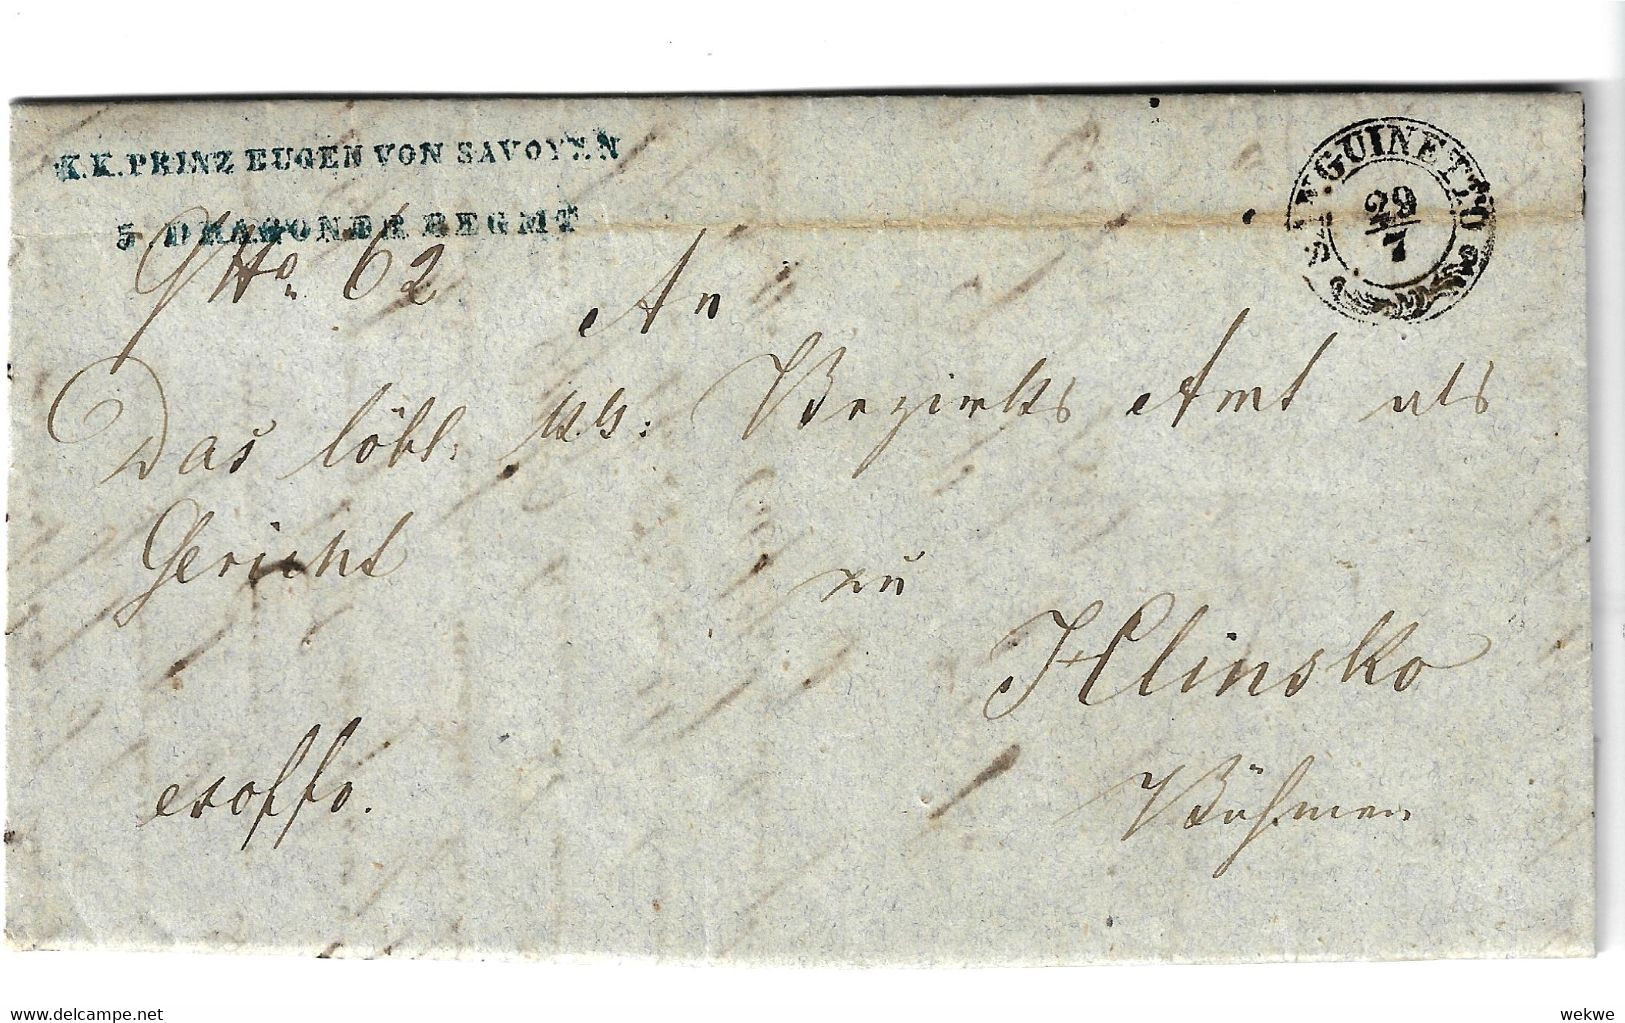 K.K. PRINZ EUGEN VON SAVOYEN
5 DRAGONER REGMT
SANGUINETTO
29
7
GNo. 62
An
Das löbl. k.k: Bezirks Amt als
Gericht
zu
Hlinsko
exoffo.
Böhmen
www.delcampe.net
wekwe